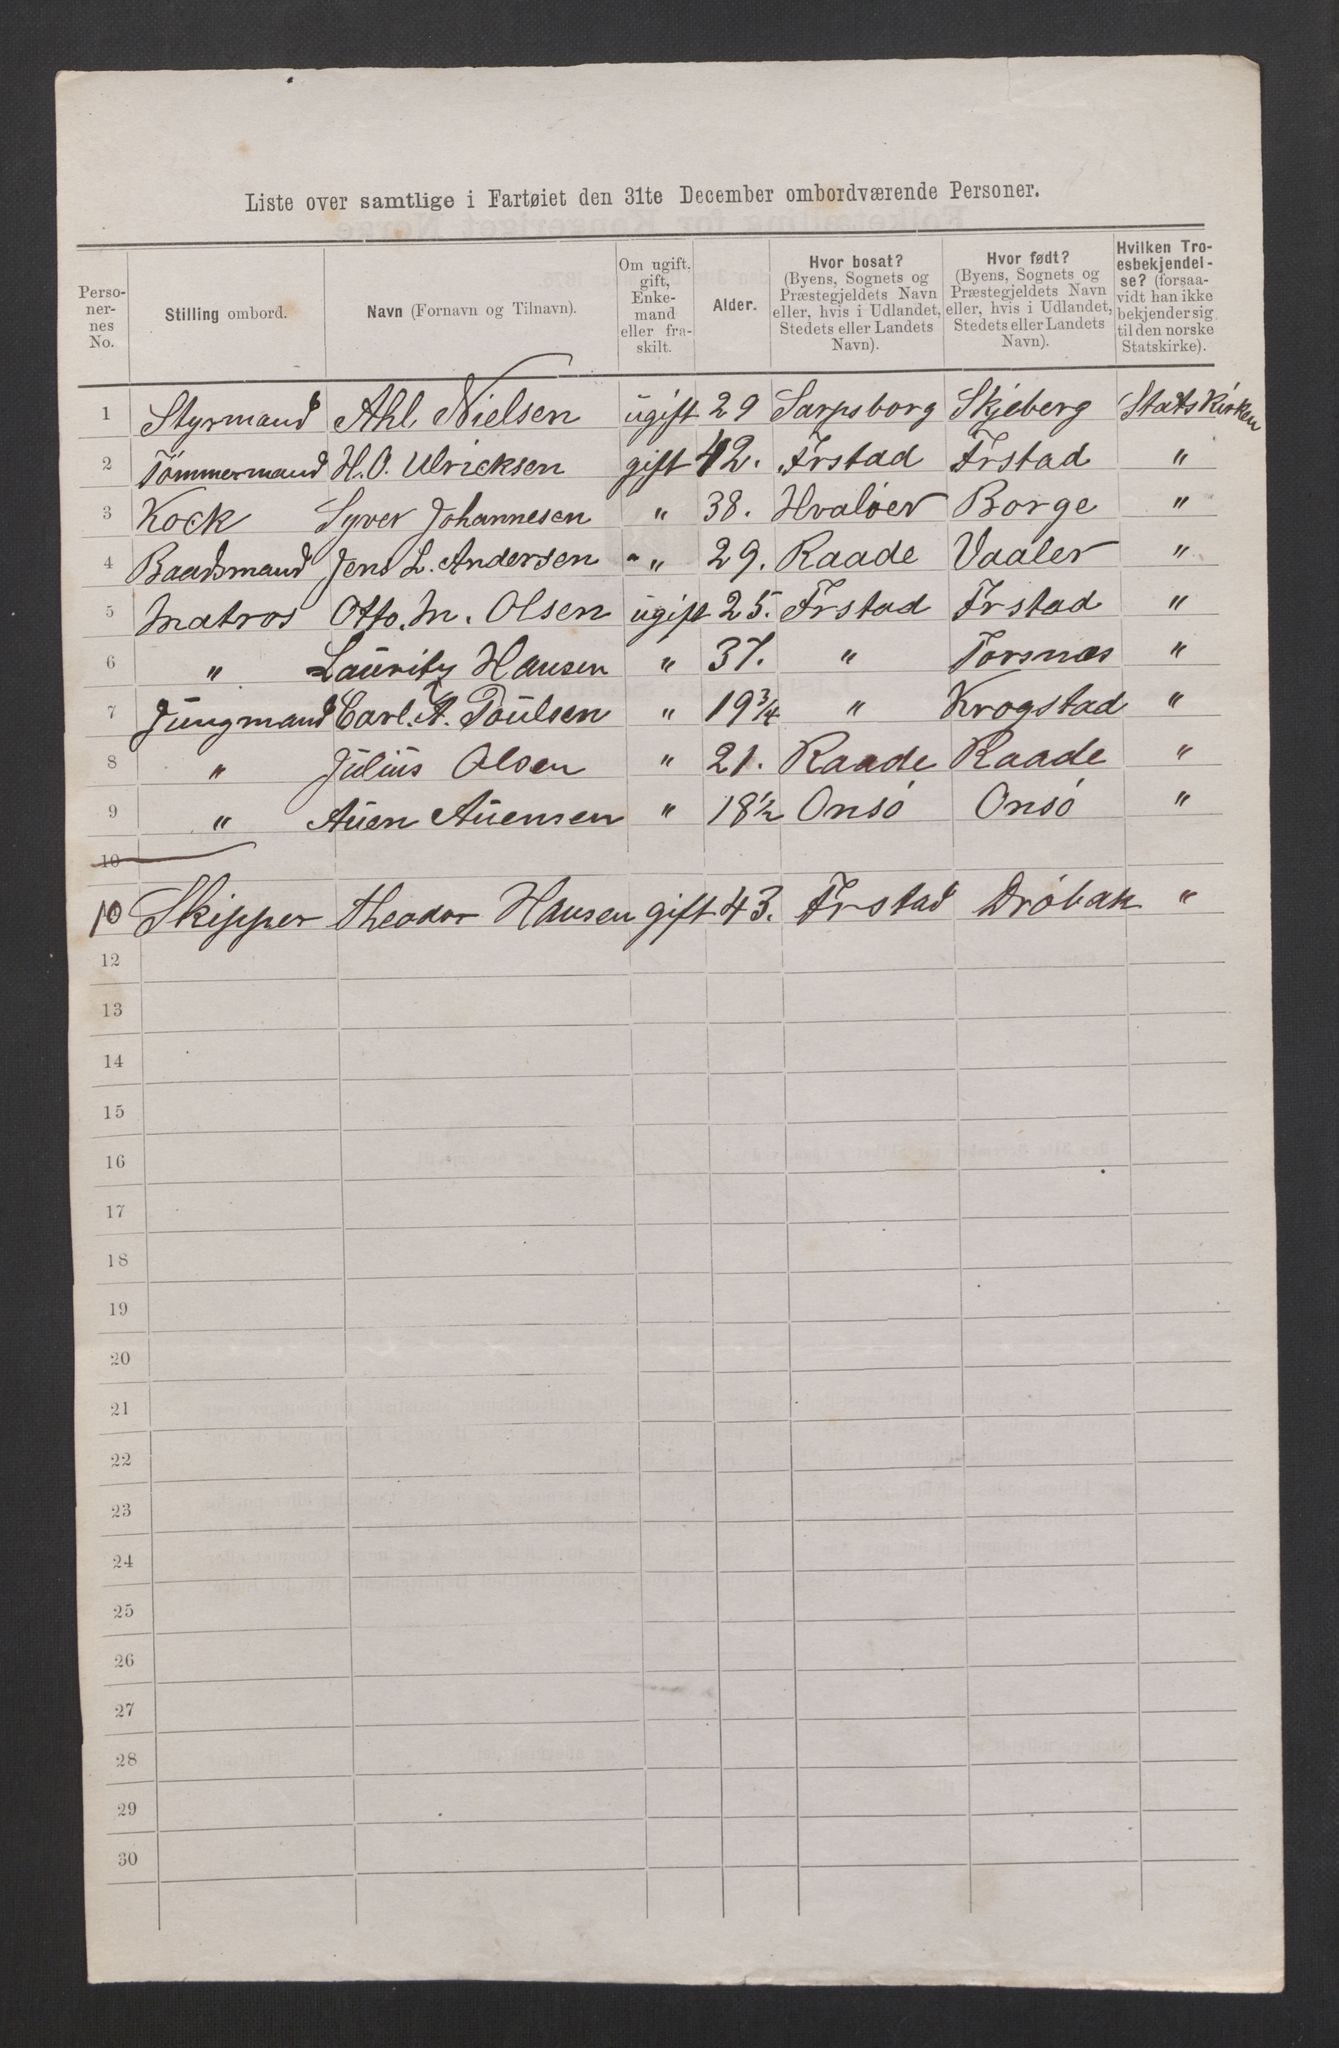 Liste over samtlige i Fartøiet den 31te December ombordværende Personer.
Perso-
ner-
nes
No.
Stilling ombord.
Navn (Fornavn og Tilnavn).
Om ugift,
gift,
Enke-
mand
eller fra-
skilt.
Alder.
Hvor bosat?
(Byens, Sognets og
Præstegjeldets Navn
eller, hvis i Udlandet,
Stedets eller Landets
Navn).
Hvor født?
(Byens, Sognets og
Præstegjeldets Navn
eller, hvis i Udlandet,
Stedets eller Landets
Navn).
Hvilken Tro-
esbekjendel-
se? (forsaa-
vidt han ikke
bekjender sig
til den norske
Statskirke).
1 Styrmand Ahl. Nielsen ugift 29 Sarpsborg Skjeberg Statskirken
2 Tömmermand H. O. Ulricksen gift 42. Frstad Frstad "
3 Kock Syver Johannesen " 38. Hvalöer Borge "
4 Baadsmand Jens L. Andersen " 29. Raade Vaaler "
5 Matros Otto. M. Olsen ugift 25. Frstad Frstad "
6 " Lauritz Hansen " 37. " Torsnæs "
7 Jungmand Carl. A. Poulsen " 19 3/4 " Krogstad "
8 " Julius Olsen " 21. Raade Raade "
9 " Auen Auensen " 18 1/2 Onsö Onsö "
10
10 Skipper Theodor Hansen gift 43. Frstad Dröbak "
12
13
14
15
16
17
18
19
20
21
22
23
24
25
26
27
28
29
30